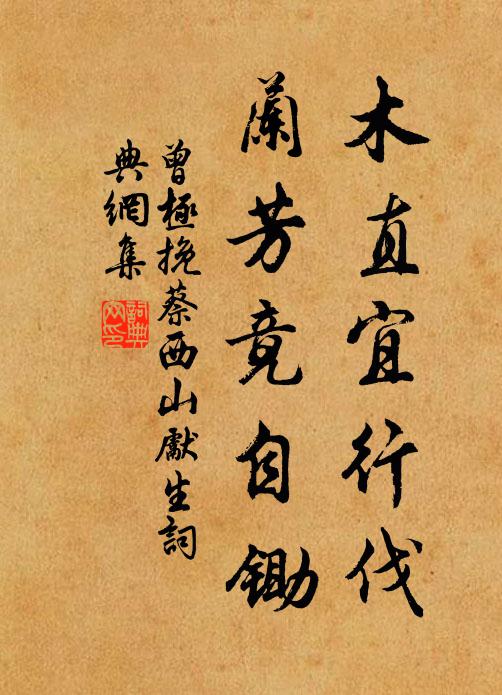 木直宜行伐
蘭芳竟自鋤
曾極挽蔡西山獻生詞
典網集
詞典
网印